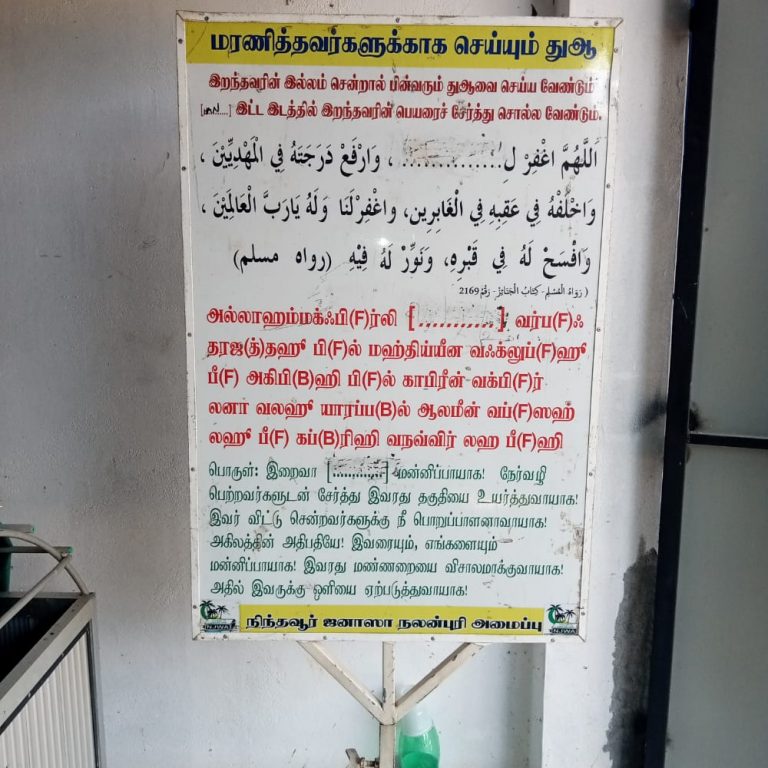 மரணித்தவர்களுக்காக செய்யும் துஆ
இறந்தவரின் இல்லம் சென்றால் பின்வரும் துஆவை செய்ய வேண்டும்
[.......] இட்ட இடத்தில் இறந்தவரின் பெயரைச் சேர்த்து சொல்ல வேண்டும்.
اَللَّهُمَّ اغْفِرْ لِ.............. ، وَارْفَعْ دَرَجَتَهُ فِي الْمَهْدِيِّيْنَ ،
وَاخْلُفْهُ فِي عَقِبِهِ فِي الْغَابِرِينَ، واغْفِرْلَنَا وَلَهُ يَارَبَّ الْعَالَمِيْنَ ،
وَافْسَحْ لَهُ فِي قَبْرِهِ، وَنَوِّرْ لَهُ فِيْهِ (رواه مسلم)
( رَوَاهُ الْمُسْلِم- كِتَابُ الْجَنَائِز- رَقْم 2169
அல்லாஹம்மக்ஃபி(F)ர்லி [............] வர்ப(F)ஃ
தரஜ(த்)தஹூ பி(F)ல் மஹ்திய்யீன வஃக்லுப்(F)ஹூ
பீ(F) அகிபி(B)ஹி பி(F)ல் காபிரீன் வக்பி(F)ர்
லனா வலஹூ யாரப்ப(B)ல் ஆலமீன் வப்(F)ஸஹ்
லஹூ பீ(F) கப்(B)ரிஹி வநவ்விர் லஹ பீ(F)ஹி
பொருள்: இறைவா [............] மன்னிப்பாயாக! நேர்வழி
பெற்றவர்களுடன் சேர்த்து இவரது தகுதியை உயர்த்துவாயாக!
இவர் விட்டு சென்றவர்களுக்கு நீ பொறுப்பாளனாவாயாக!
அகிலத்தின் அதிபதியே! இவரையும், எங்களையும்
மன்னிப்பாயாக! இவரது மண்ணறையை விசாலமாக்குவாயாக!
அதில் இவருக்கு ஒளியை ஏற்படுத்துவாயாக!
நிந்தவூர் ஜனாஸா நலன்புரி அமைப்பு